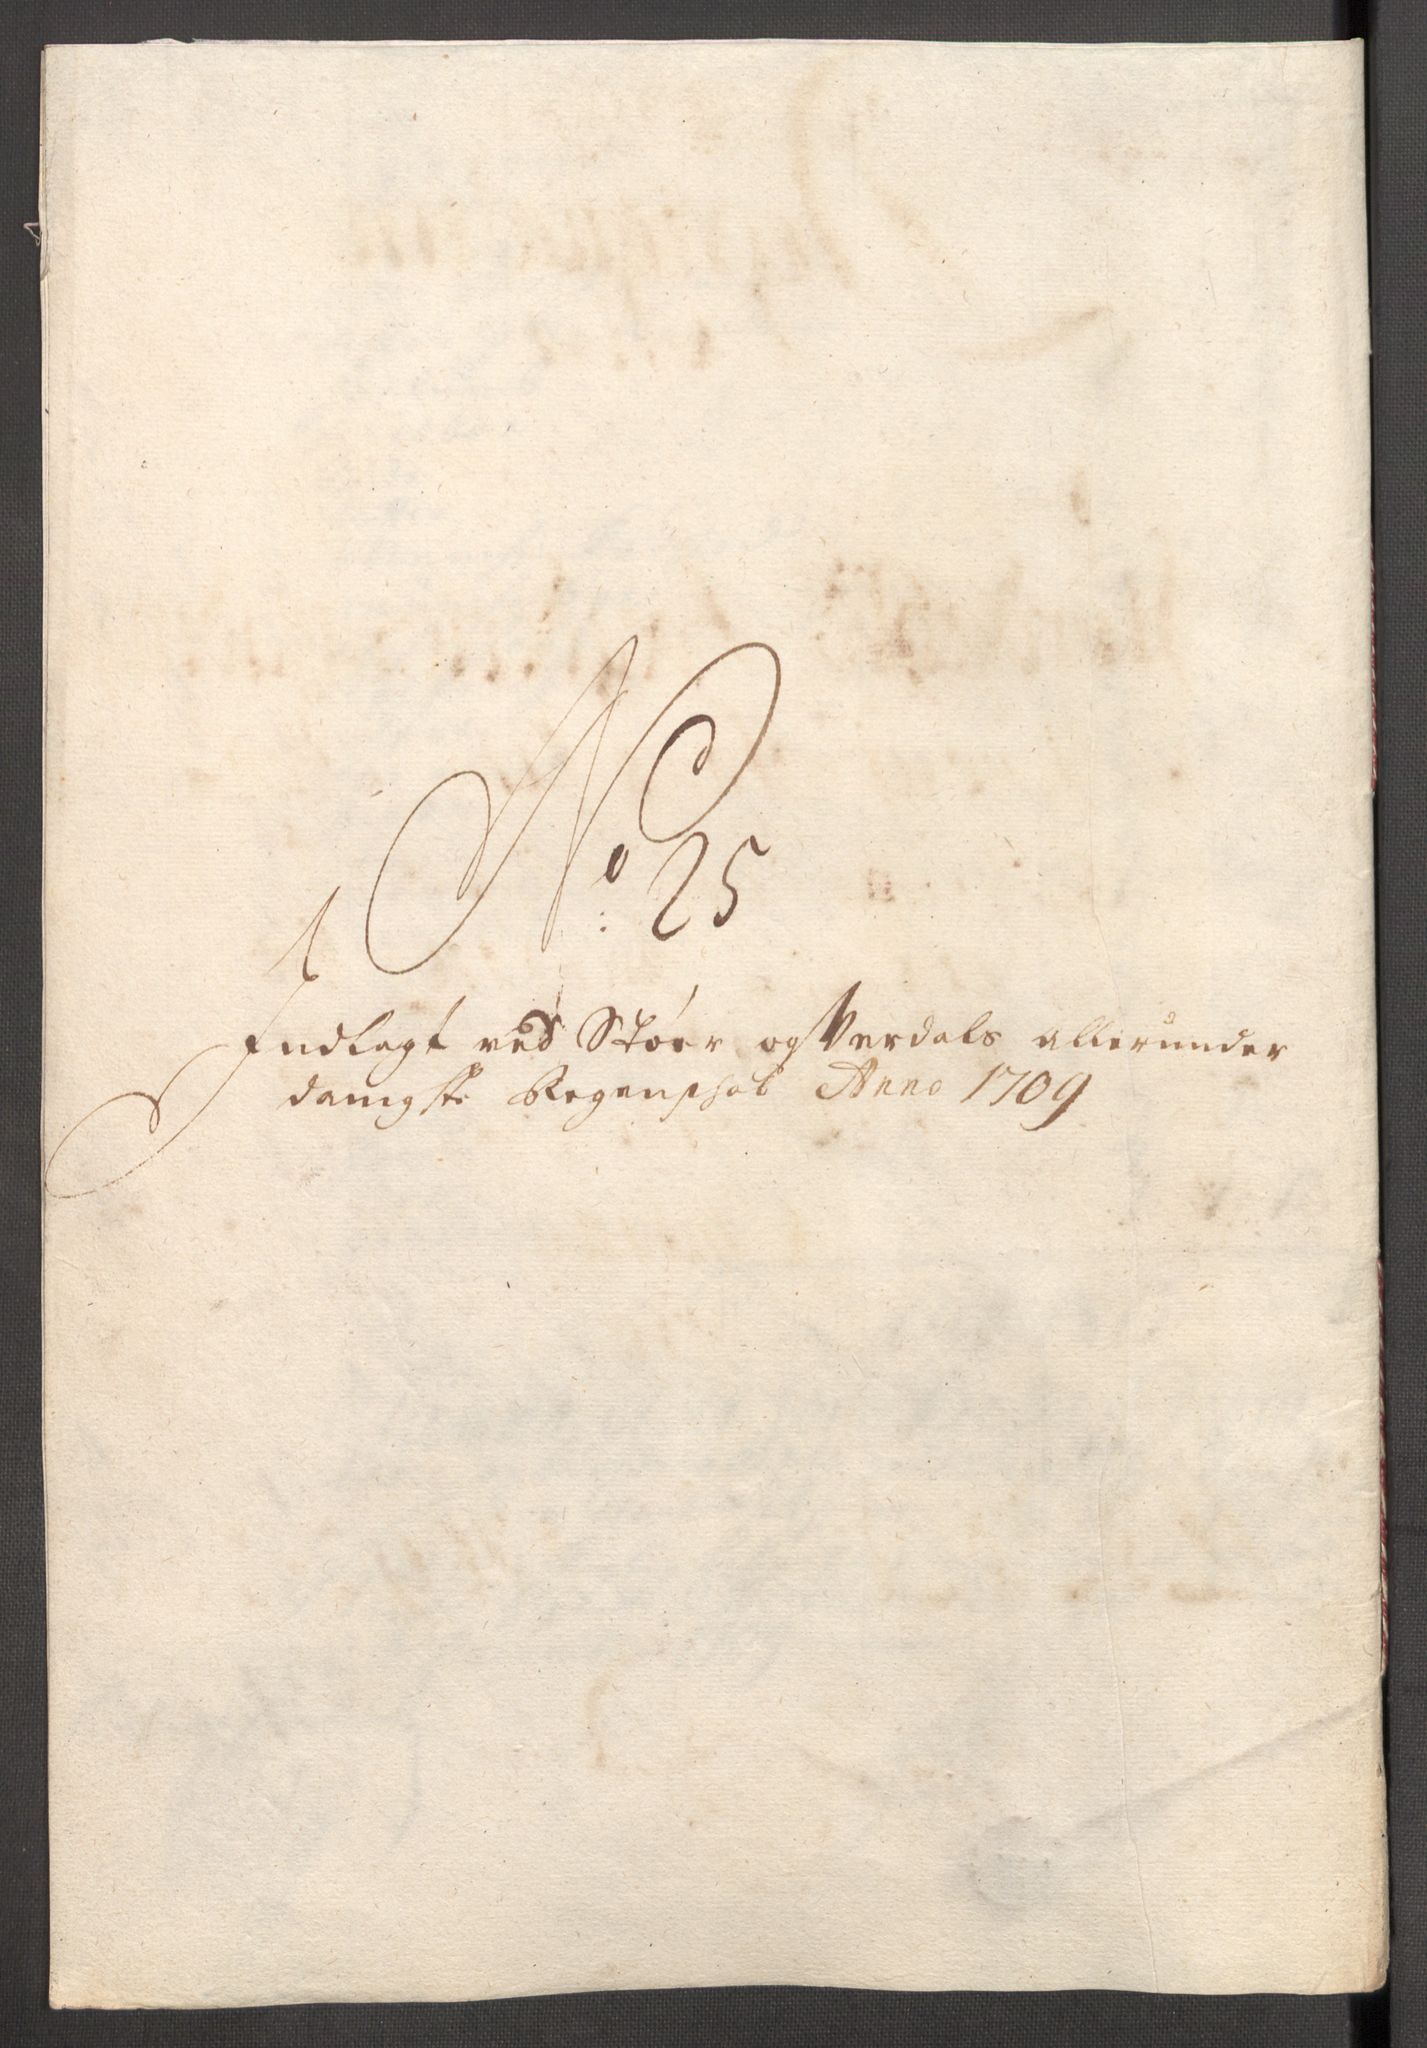 No: 25
Indlagt ved Støer og Verdals allerunder
danigste Regenschab Anno 1709